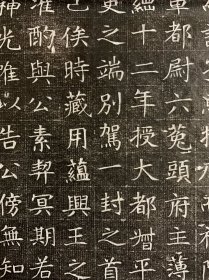 軍都尉六菟頭府主薄
繼十二年授大都督平
史之端別駕一封之首
已俟時藏用蘊興王之
准酌與公素契冥期若
神光唯以告公傍無知